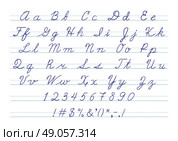 Aa Bb Cc Dd Ee
Ff Gg Hh Ii Jj Kk
Ll Mm Nn Oo Pp
Qq Rr Ss Tt Uu
Vv Ww Xx Yy Zz
1 2 3 4 5 6 7 8 9 0
49.057.314